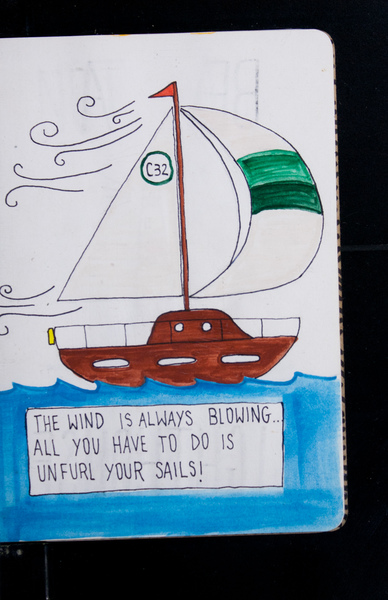 C32
THE WIND IS ALWAYS BLOWING..
ALL YOU HAVE TO DO IS
UNFURL YOUR SAILS!